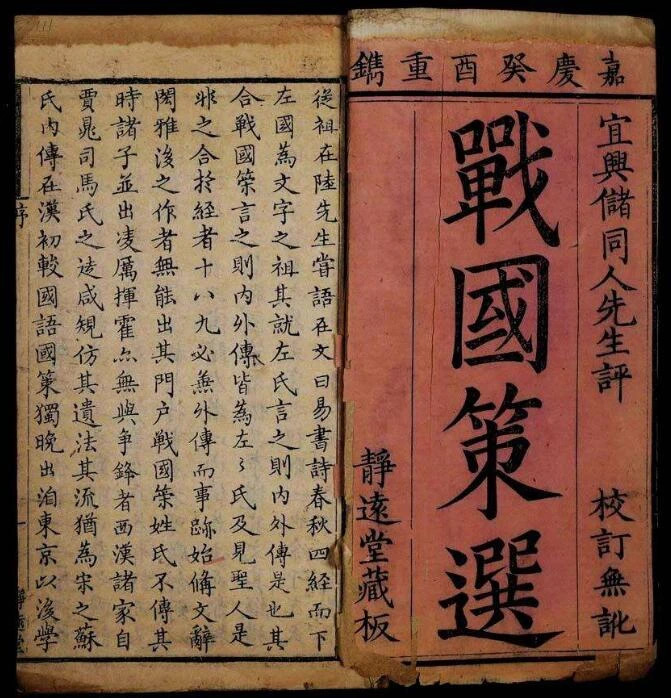 嘉慶癸酉重鐫
宜興儲同人先生評 校訂無訛
戰國策選
靜遠堂藏板
從祖在陸先生嘗語在文曰易書詩春秋四經而下
左國為文字之祖其就左氏言之則内外傳是也其
合戰國策言之則内外傳皆為左々氏及見聖人是
非之合於經者十八九必兼外傳而事跡始備文辭
閎雅後之作者無能出其門户戰國策姓氏不傳其
時諸子並出凌厲揮霍亦無與爭鋒者西漢諸家自
賈晁司馬氏之徒咸規仿其遺法其流猶為宋之蘇
氏内傳在漢初較國語國策獨晚出洎東京以後學
序 一